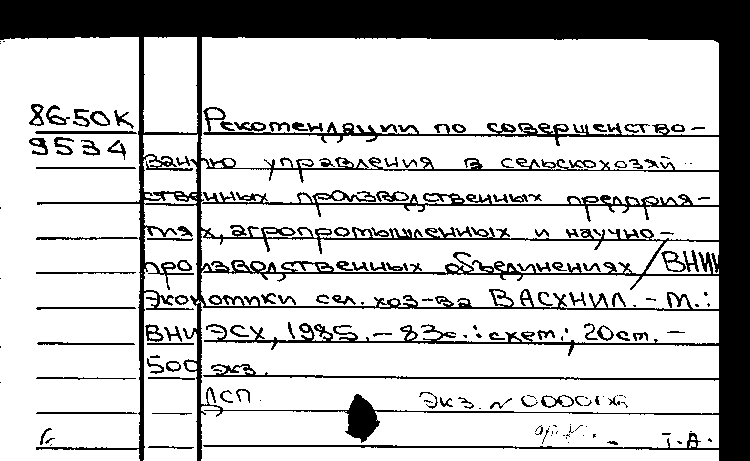 86-50К
9534
Рекомендации по совершенство-
ванию управления в сельскохозяй-
ственных производственных предприя-
тиях, агропромышленных и научно-
производственных объединениях / ВНИИ
Экономики сел. хоз-ва ВАСХНИЛ. - М.:
ВНИЭСХ, 1985. - 83с.: схем.; 20см. -
500 экз.
ДСП. Экз. №
Т.А.